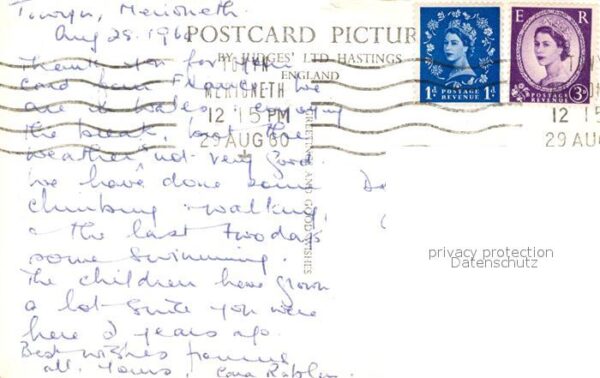 Towyn, Merioneth.
Aug 28. 1960
POSTCARD PICTUR
BY JUDGES' LTD HASTINGS
ENGLAND
Thank you for the
card from We
are in Wales enjoying
the break, but the
weather not very good.
We have done some
climbing & walking,
& the last two days
some swimming.
The children have grown
a lot since you were
here 2 years ago.
Best wishes from us
all. Yours,
GREETINGS AND GOOD WISHES
TOWYN
MERIONETH
12 15 PM
29 AUG 60
1D POSTAGE REVENUE 1D
E R
POSTAGE REVENUE 3D
12 15
29 AUG 60
privacy protection
Datenschutz